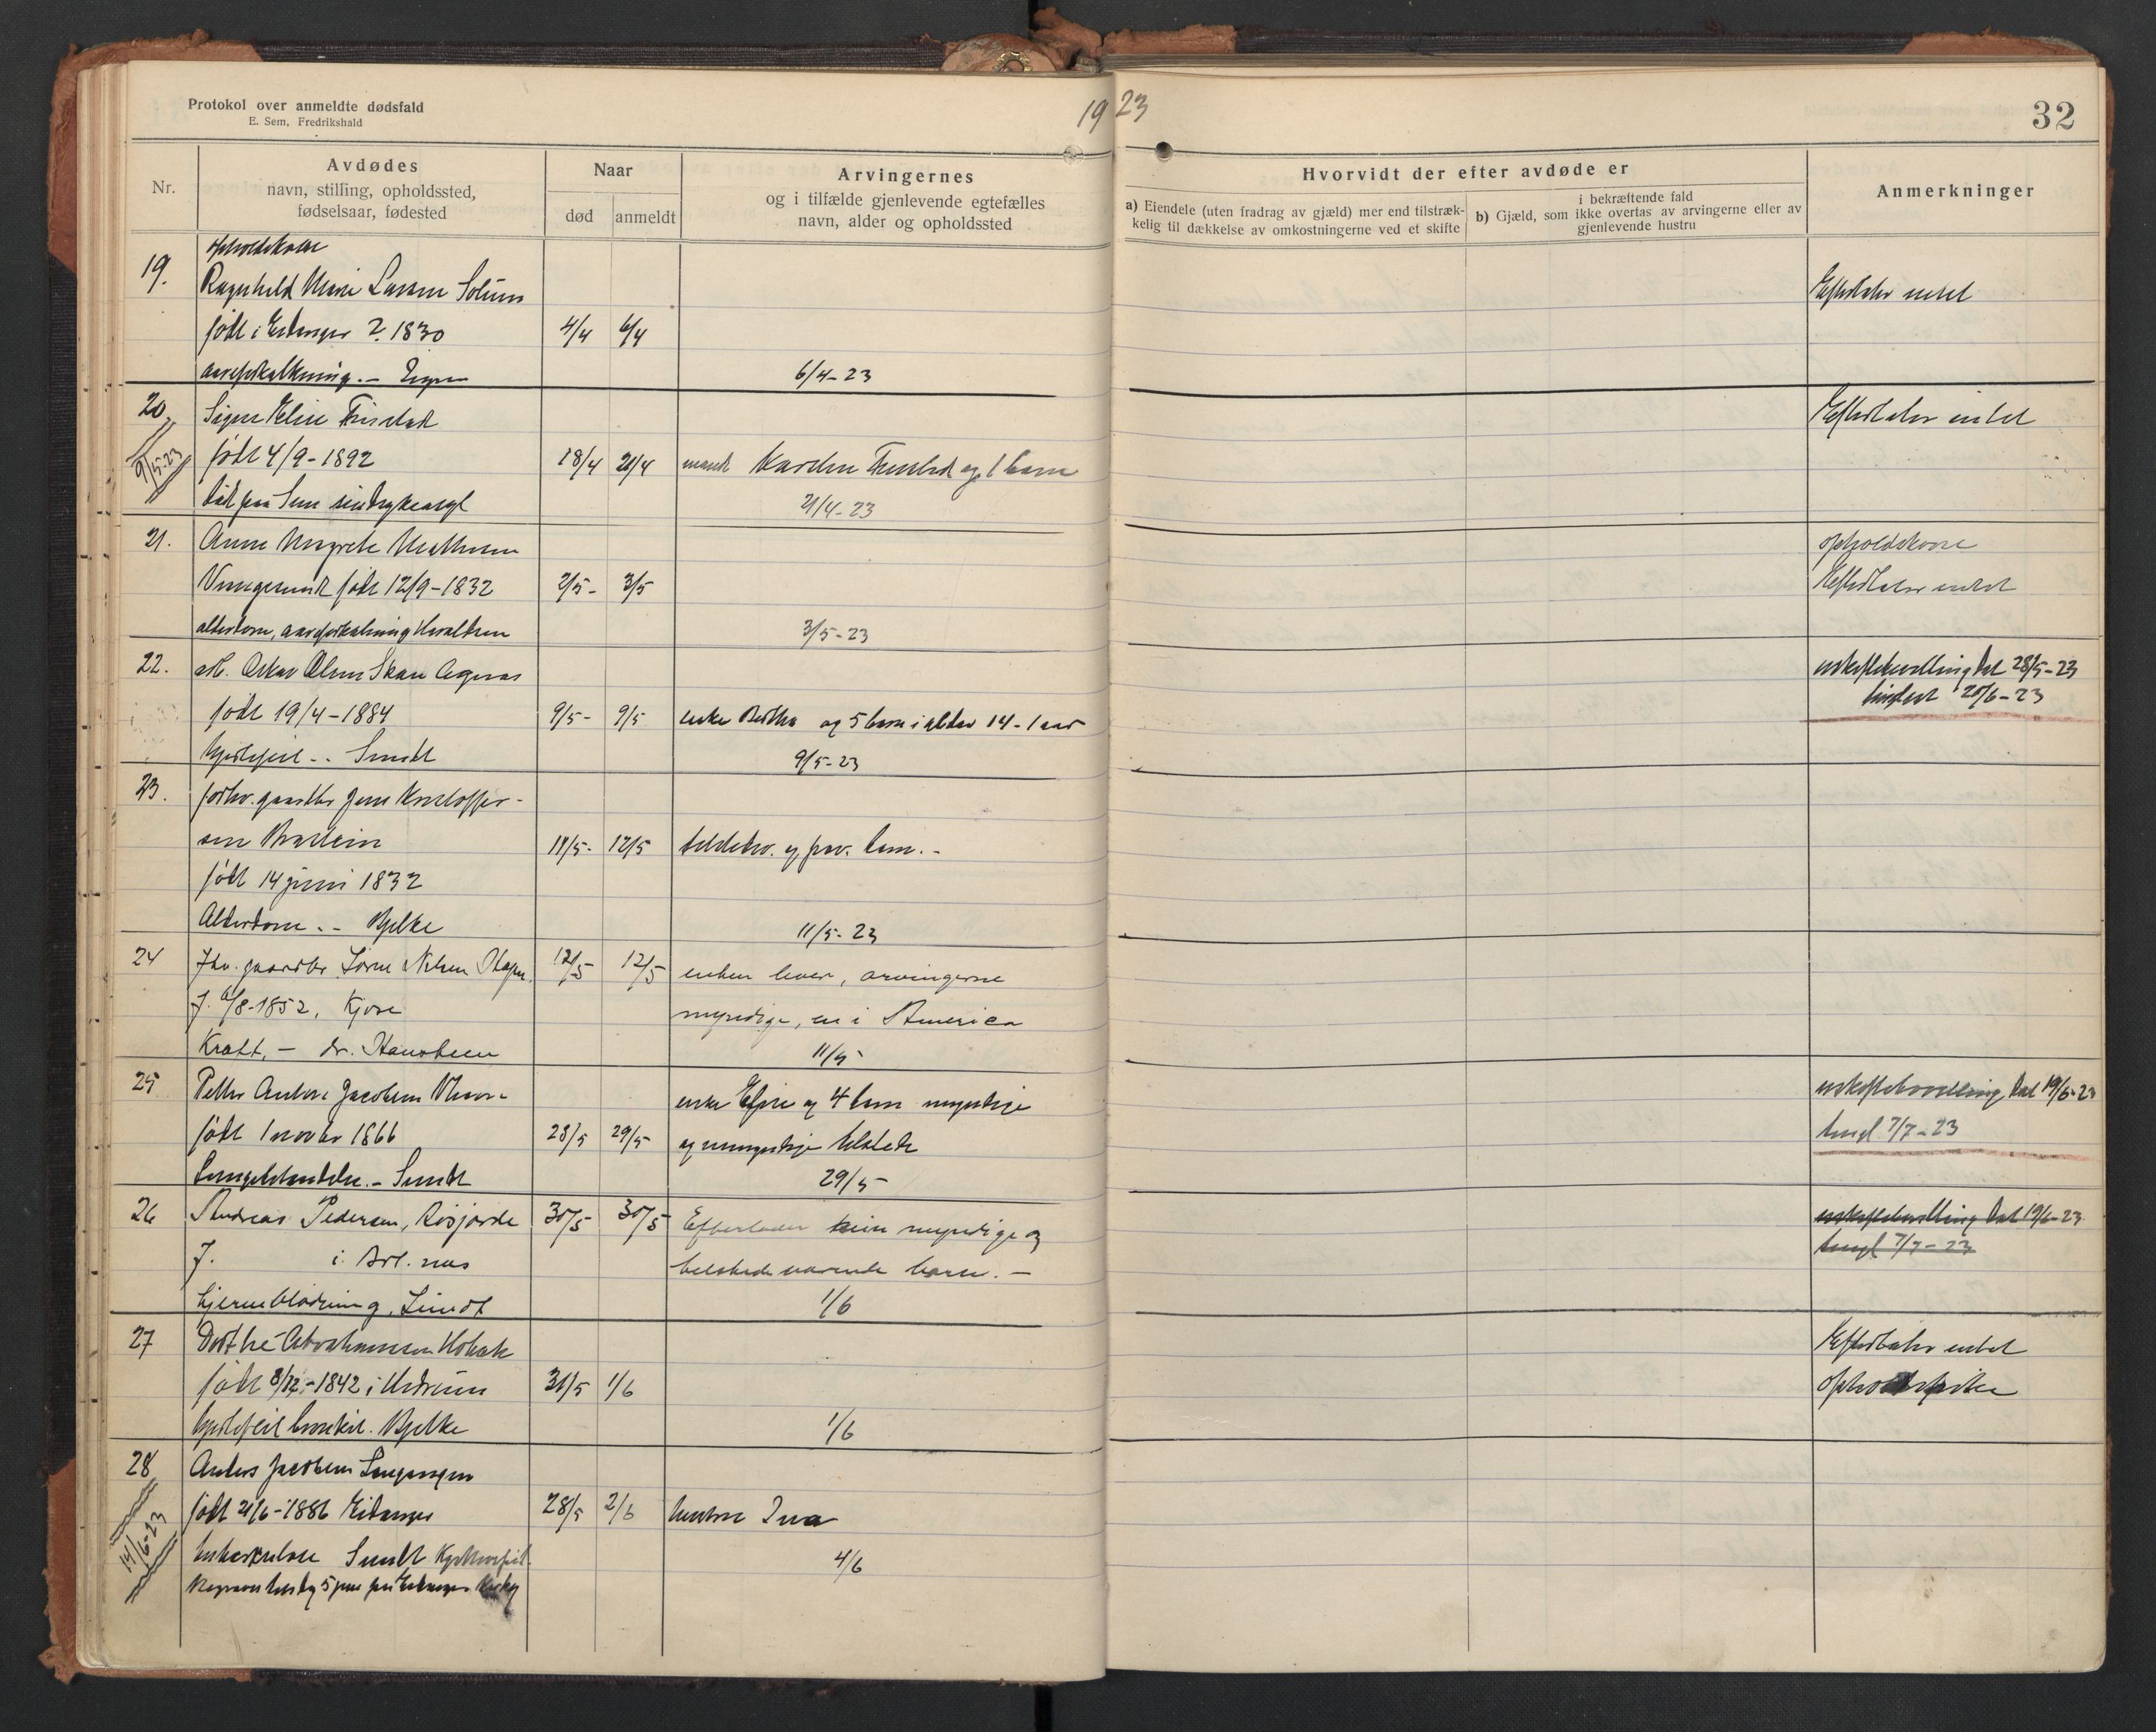 Protokol over anmeldte dødsfald
E. Sem, Fredrikshald
19 23
32
Nr.
Avdødes
navn, stilling, opholdssted,
fødselsaar, fødested
Naar
død
anmeldt
Arvingernes
og i tilfælde gjenlevende egtefælles
navn, alder og opholdssted
Hvorvidt der efter avdøde er
a) Eiendele (uten fradrag av gjæld) mer end tilstræk-
kelig til dækkelse av omkostningerne ved et skifte
i bekræftende fald
b) Gjæld, som ikke overtas av arvingerne eller av
gjenlevende hustru
Anmerkninger
19.
opholdskone
Ragnhild Marie Larsen Solum
født i Eidanger 2. 1830
4/4 6/4
6/4-23
Efterlater intet
20
9/5-23
Signe Elise
født 4/9-1892
død paa Sem sindsykeasyl
18/4 21/4
mand og 1 barn
21/4-23
Efterlater intet
21.
Anne Margrete Mathisen
født 12/9-1832
alderdom,
2/5- 3/5
3/5-23
opholdskone
Efterlater intet
22.
Oskar Olsen Skau
født 19/4-1884
hjertefeil -- Sundt
9/5- 9/5
enke Bertha og 5 barn i alder 14-1 aar
9/5-23
uskiftebevilling dat 28/5-23
tinglest 20/6-23
23.
forhv. gaardbr Jens Kristoffer-
sen
født 14 juni 1832
Alderdom -- Bjelke
11/5- 12/5
tilstedev. og barn.-
11/5-23
24
Fhv. gaardbr. Nilsen
f. 6/8-1852, Kjose
Kræft, - dr.
12/5 12/5
enken lever, arvingerne
myndige, en i America
11/5-
25
Petter Jacobsen
født 1 novbr 1866
Lungebetændelse.- Sundt
28/5 29/5
enke og 4 barn myndige
og tilstede
29/5-
uskiftebevilling dat 19/6-23
tingl 7/7-23
26
Andreas Pedersen,
f. i Brl. nes
hjerneblødning, Sundt
30/5 30/5
Efterlader kun myndige og
tilstedeværende barn.-
1/6
uskiftebevilling dat 19/6-23
tingl 7/7-23
27
Dorthe Abrahamsen
født 8/12-1842 i Hedrum
hjertefeil Bjelke
31/5 1/6
1/6
Efterlater intet
28
14/6-23
Anders Jacobsen Langangen
født 21/6-1886 Eidanger
tuberkulose Sundt
28/5 2/6
hustru Ina
4/6